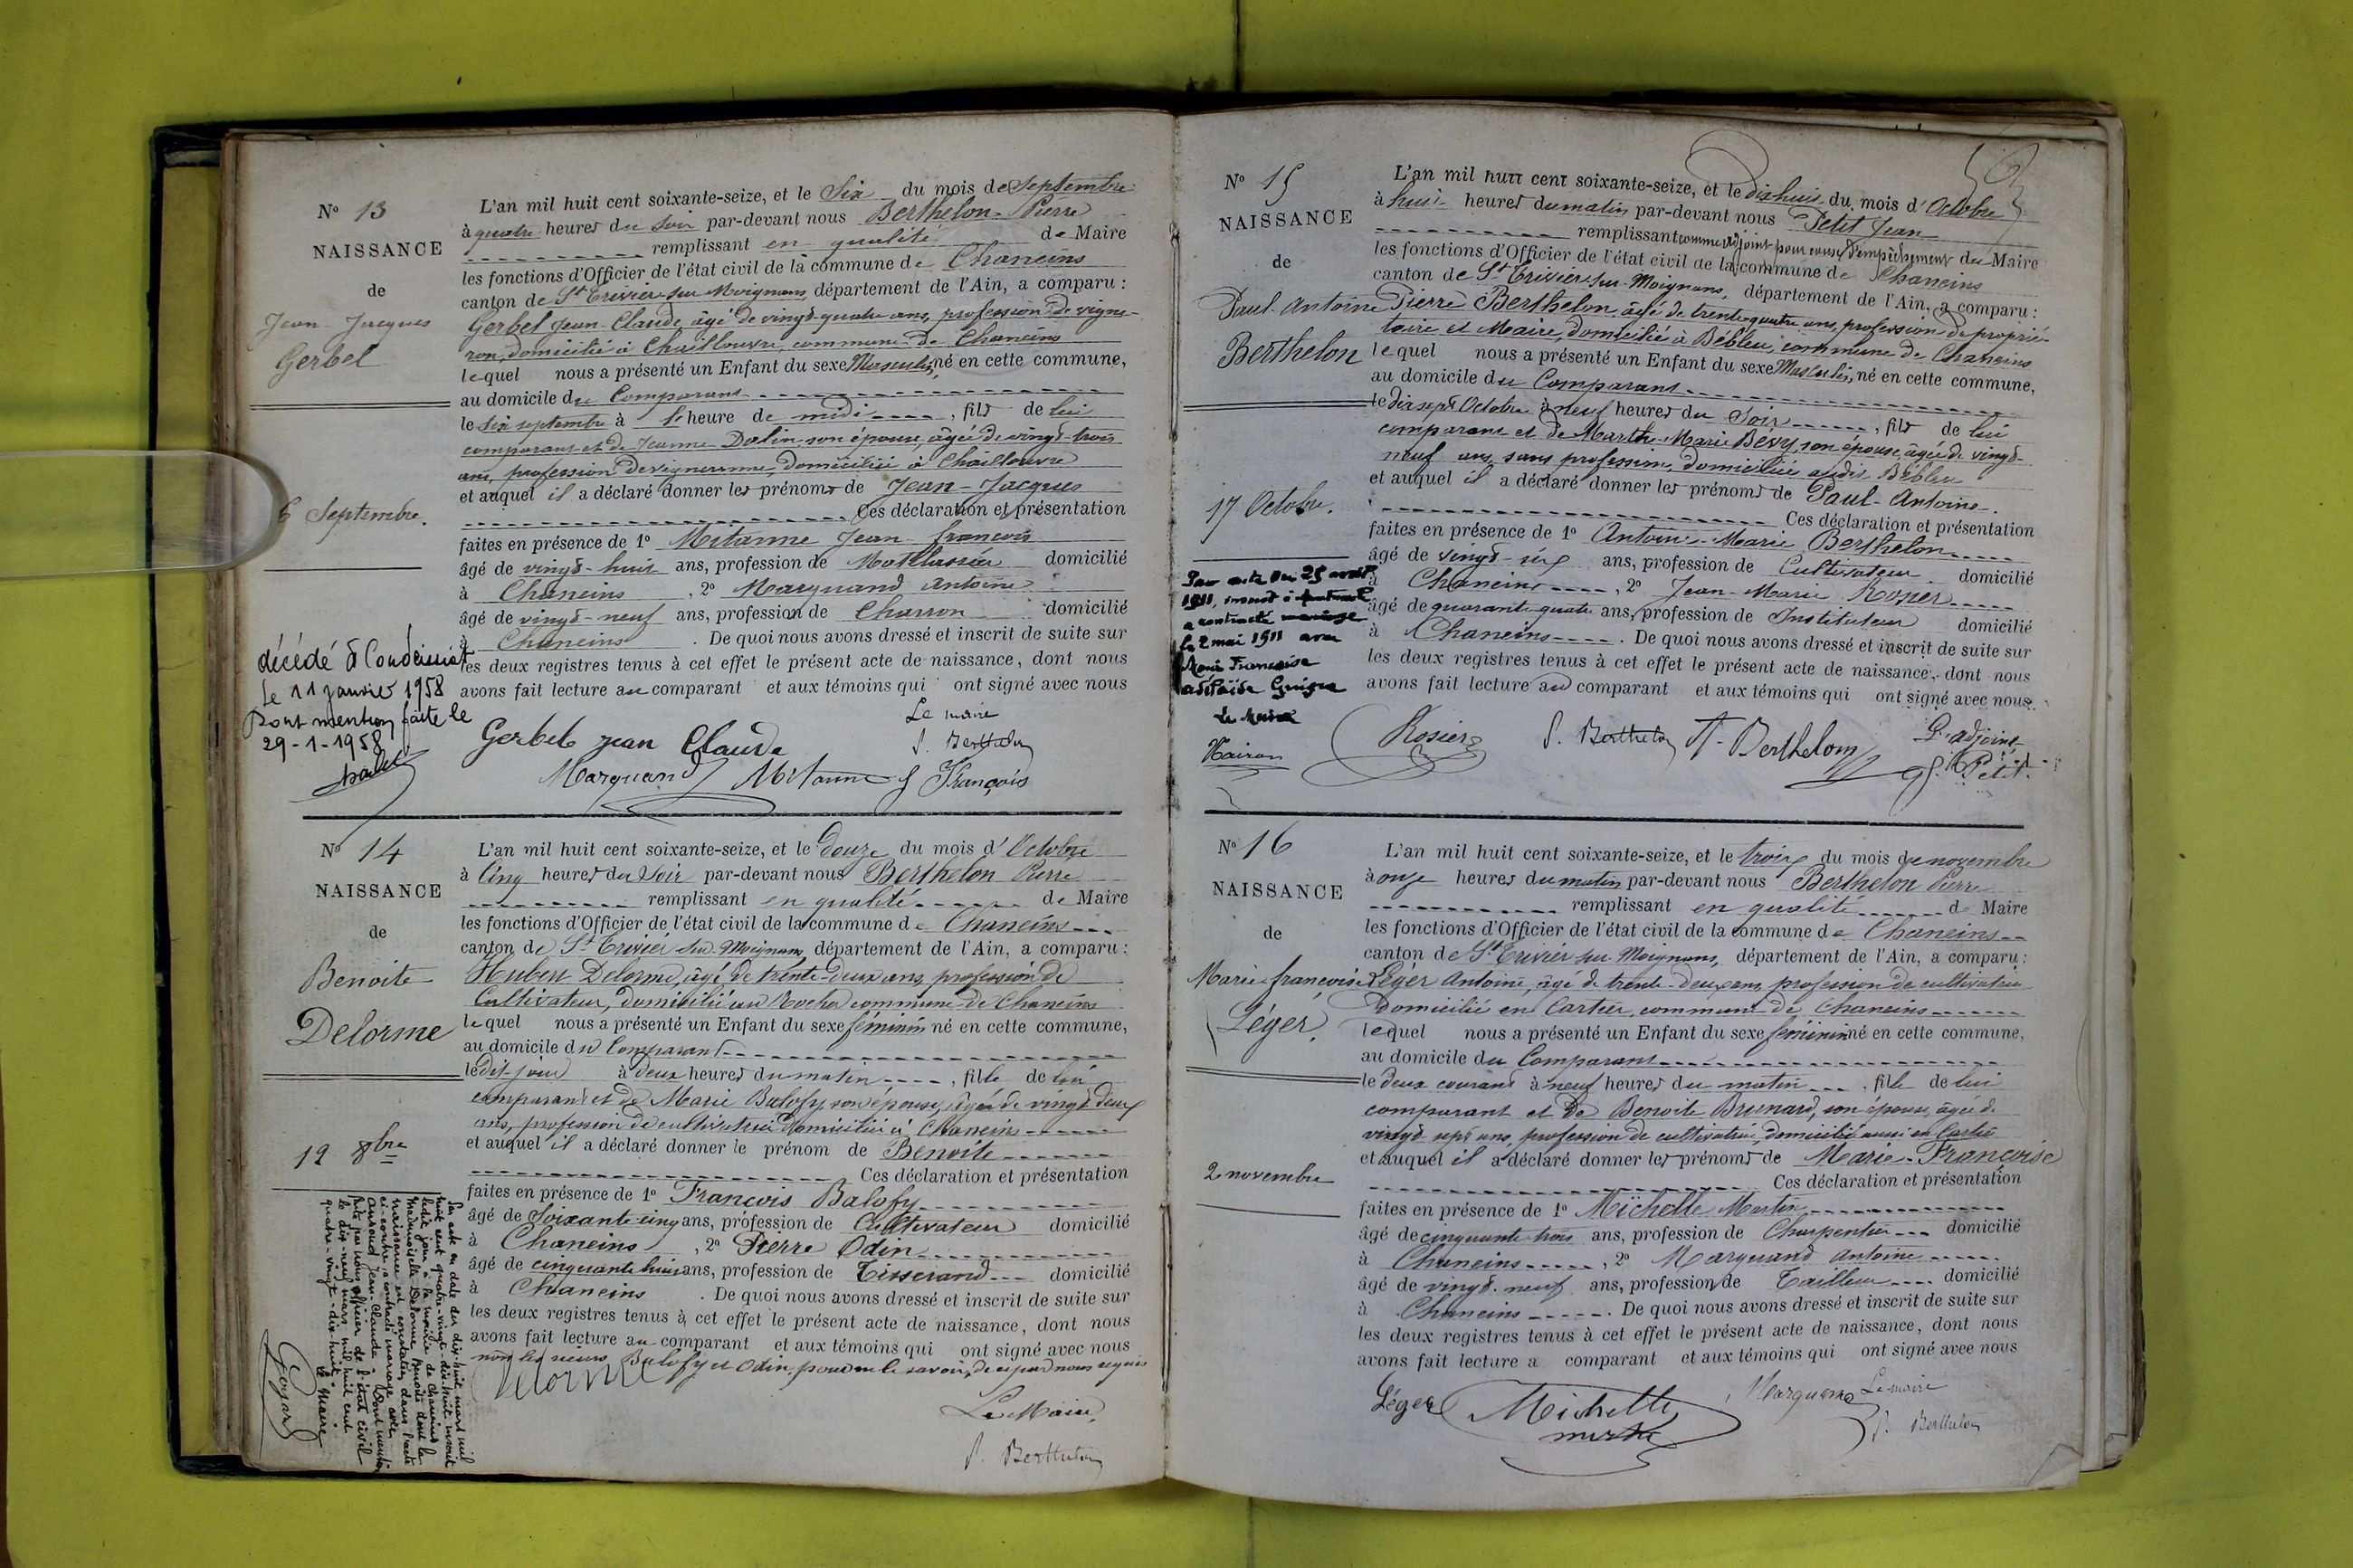 N° 13
NAISSANCE
de
Jean-Jacques
Gerbel
6 Septembre.
décédé à Condeissiat
le 11 janvier 1958
Dont mention faite le
29-1-1958
L'an mil huit cent soixante-seize, et le Six du mois de Septembre
à quatre heures du Soir par-devant nous Berthelon Pierre
remplissant en qualité de Maire
les fonctions d'Officier de l'état civil de la commune de Chaneins
canton de St Trivier sur Moignans, département de l'Ain, a comparu :
Gerbel Jean-Claude, âgé de vingt-quatre ans, profession de vigne-
ron, domicilié à Chaillouvre, commune de Chaneins
lequel nous a présenté un Enfant du sexe Masculin, né en cette commune,
au domicile du Comparant
le six septembre à heure de midi, fils de lui
comparant et de Jeanne Dolin son épouse, âgée de vingt-trois
ans, profession de vigneronne domiciliée à Chaillouvre
et auquel il a déclaré donner les prénoms de Jean-Jacques
Ces déclaration et présentation
faites en présence de 1° Mitanne Jean-françois
âgé de vingt-huit ans, profession de domicilié
à Chaneins, 2° Marquand Antoine
âgé de vingt-neuf ans, profession de Charron domicilié
à Chaneins. De quoi nous avons dressé et inscrit de suite sur
les deux registres tenus à cet effet le présent acte de naissance, dont nous
avons fait lecture au comparant et aux témoins qui ont signé avec nous
Le maire
Gerbel jean Claude P. Berthelon
Marquand Mitanne J François
N° 14
NAISSANCE
de
Benoite
Delorme
12 8bre
Par acte en date du dix-huit mars mil
huit cent quatre-vingt-dix-huit inscrit
ledit jour à la mairie de Chaneins
Mademoiselle Delorme Benoite dont la
naissance est constatée dans l'acte
ci-contre a contracté mariage avec
Jean-Claude. Dont mention
faite par nous officier de l'état civil
le dix-neuf mars mil huit cent
quatre-vingt-dix-huit.
Le Maire
L'an mil huit cent soixante-seize, et le Douze du mois d'Octobre
à Cinq heures du Soir par-devant nous Berthelon Pierre
remplissant en qualité de Maire
les fonctions d'Officier de l'état civil de la commune de Chaneins
canton de St Trivier sur Moignans, département de l'Ain, a comparu :
Hubert Delorme, âgé de trente-deux ans, profession de
Cultivateur, domicilié au Rocher commune de Chaneins
lequel nous a présenté un Enfant du sexe féminin né en cette commune,
au domicile du Comparant
ledit jour à deux heures du matin, fille de lui
comparant et de Marie Balofy son épouse, âgée de vingt deux
ans, profession de cultivatrice domiciliée à Chaneins
et auquel il a déclaré donner le prénom de Benoite
Ces déclaration et présentation
faites en présence de 1° François Balofy
âgé de Soixante cinq ans, profession de Cultivateur domicilié
à Chaneins, 2° Pierre Odin
âgé de cinquante huit ans, profession de Tisserand domicilié
à Chaneins. De quoi nous avons dressé et inscrit de suite sur
les deux registres tenus à cet effet le présent acte de naissance, dont nous
avons fait lecture au comparant et aux témoins qui ont signé avec nous
non les sieurs Balofy et Odin pour ne le savoir, de ce par nous requis
Delorme
Le Maire,
P. Berthelon
N° 15
NAISSANCE
de
Paul-Antoine
Berthelon
17 Octobre.
Par acte du 25 avril
1911, inscrit à
a contracté mariage
le 2 mai 1911 avec
Marie Françoise
Adélaïde
Le Maire
L'an mil huit cent soixante-seize, et le dix huit du mois d'Octobre
à huit heures du matin par-devant nous Petit Jean
remplissant comme adjoint pour cause d'empêchement du Maire
les fonctions d'Officier de l'état civil de la commune de Chaneins
canton de St Trivier sur Moignans, département de l'Ain, a comparu :
Pierre Berthelon, âgé de trente quatre ans, profession de proprié-
taire et Maire, domicilié à Bébleu, commune de Chaneins
lequel nous a présenté un Enfant du sexe Masculin, né en cette commune,
au domicile du Comparant
le dix sept Octobre à neuf heures du Soir, fils de lui
comparant et de Marthe-Marie Bévy, son épouse, âgée de vingt-
neuf ans, sans profession, domiciliée audit Bébleu
et auquel il a déclaré donner les prénoms de Paul-Antoine.
Ces déclaration et présentation
faites en présence de 1° Antoine-Marie Berthelon
âgé de vingt-six ans, profession de Cultivateur domicilié
à Chaneins, 2° Jean-Marie Rosier
âgé de quarante quatre ans, profession de Instituteur domicilié
à Chaneins. De quoi nous avons dressé et inscrit de suite sur
les deux registres tenus à cet effet le présent acte de naissance, dont nous
avons fait lecture au comparant et aux témoins qui ont signé avec nous
Rosier P. Berthelon A. Berthelon L'adjoint
J. Petit
N° 16
NAISSANCE
de
Marie françoise
Léger
2 novembre
L'an mil huit cent soixante-seize, et le trois du mois de novembre
à onze heures du matin par-devant nous Berthelon Pierre
remplissant en qualité de Maire
les fonctions d'Officier de l'état civil de la commune de Chaneins
canton de St Trivier sur Moignans, département de l'Ain, a comparu :
Léger Antoine, âgé de trente-deux ans, profession de cultivateur
domicilié en Cartier, commune de Chaneins
lequel nous a présenté un Enfant du sexe féminin né en cette commune,
au domicile du Comparant
le deux courant à neuf heures du matin, fille de lui
comparant et de Benoite Brunard, son épouse, âgée de
vingt sept ans, profession de cultivatrice, domiciliée aussi en Cartier
et auquel il a déclaré donner les prénoms de Marie-Françoise
Ces déclaration et présentation
faites en présence de 1° Michelle Martin
âgé de cinquante trois ans, profession de Charpentier domicilié
à Chaneins, 2° Marquand Antoine
âgé de vingt-neuf ans, profession de Tailleur domicilié
à Chaneins. De quoi nous avons dressé et inscrit de suite sur
les deux registres tenus à cet effet le présent acte de naissance, dont nous
avons fait lecture a comparant et aux témoins qui ont signé avec nous
Léger Michelle Marquand Le maire
P. Berthelon